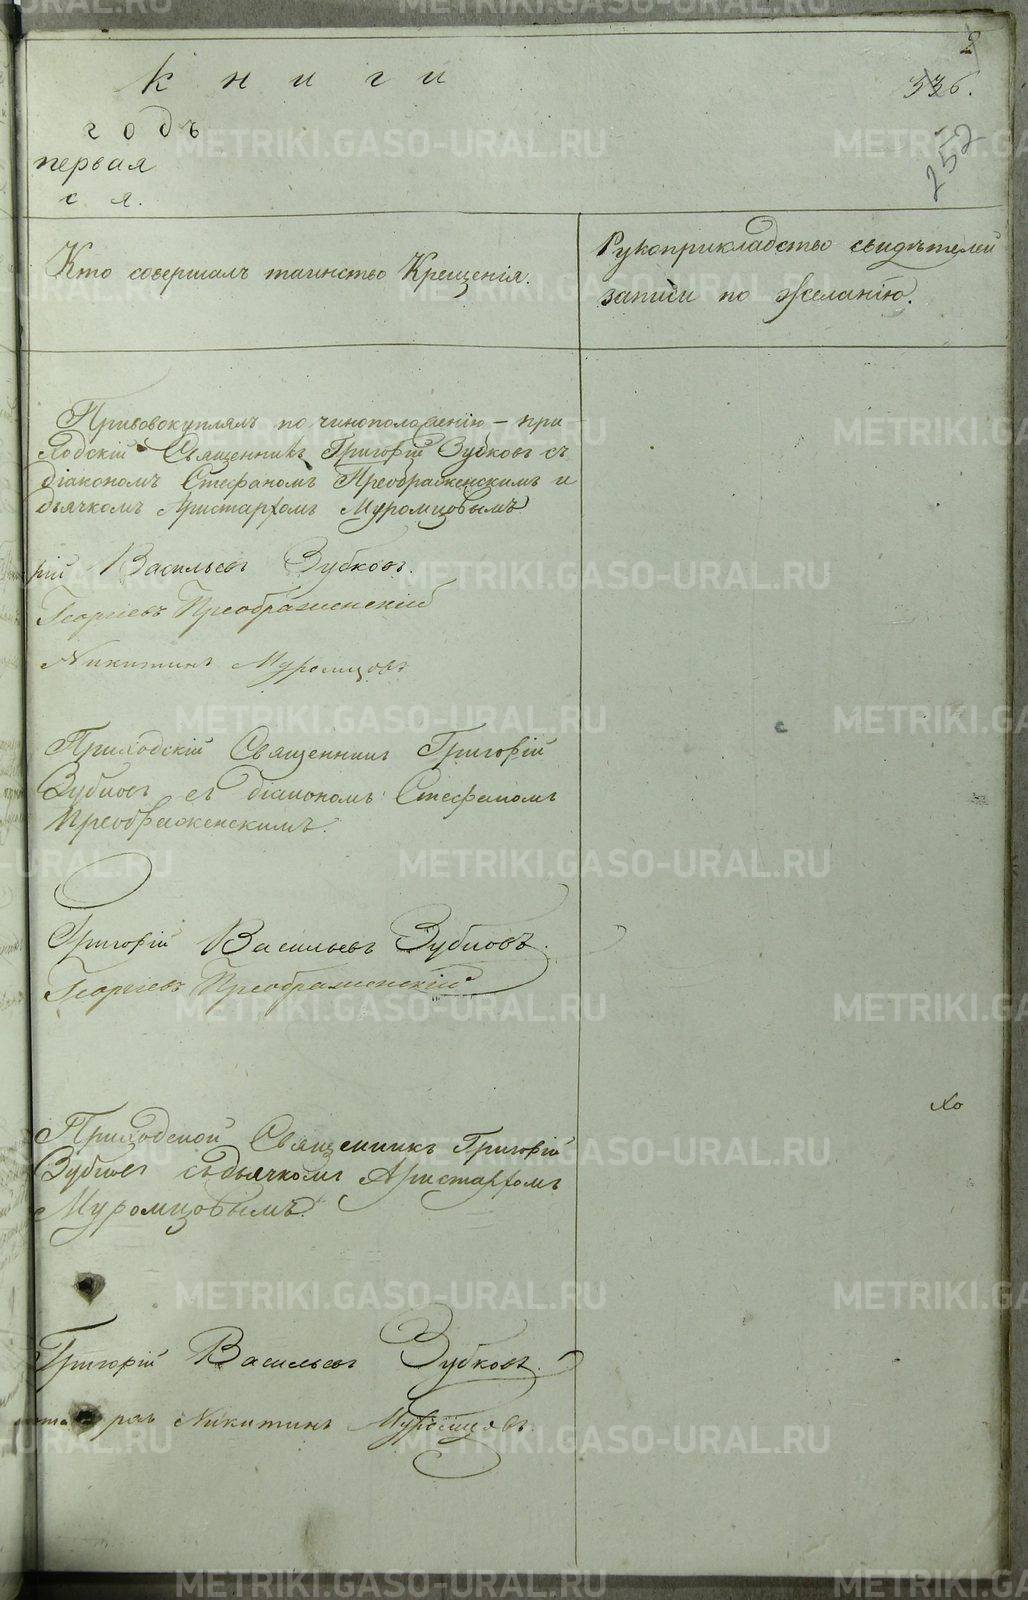 книги
336.
годъ
252
первая
ся.
Кто совершалъ таинство Крещенія.
Рукоприкладство свидѣтелей
записи по желанію.
Присовокуплялъ по чиноположенію – при
ходскій Священникъ Григорій Зубковъ съ
діакономъ Стефаномъ Преображенскимъ и
дьячкомъ Аристархомъ Муромцовымъ
рій Васильевъ Зубковъ.
Георгіевъ Преображенскій
Никитинъ Муромцовъ
Приходскій Священникъ Григорій
Зубковъ съ діакономъ Стефаномъ
Преображенскимъ.
Григорій Васильевъ Зубковъ.
Георгіевъ Преображенскій
Приходской Священникъ Григорій
Зубковъ съ дьячкомъ Аристархомъ
Муромцовымъ.
Григорій Васильевъ Зубковъ.
Никитинъ Муромцовъ.
METRIKI.GASO-URAL.RU